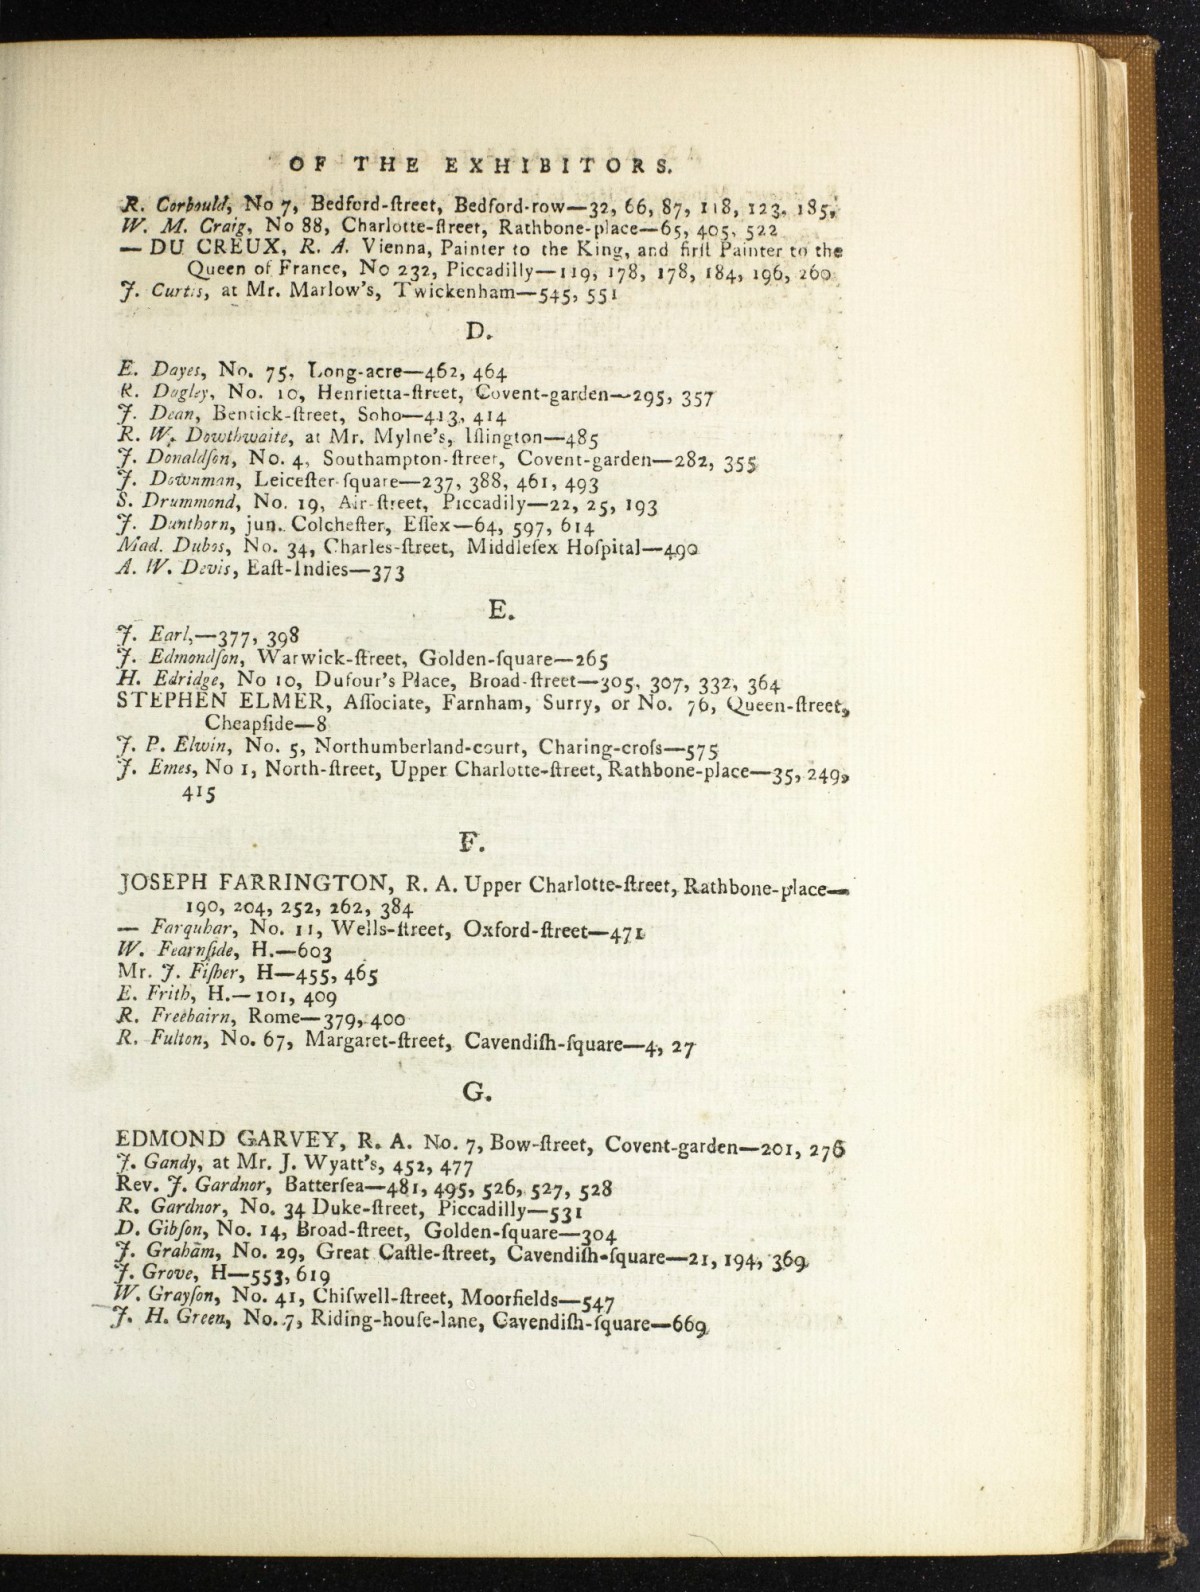 OF THE EXHIBITORS.
R. Corbould, No 7, Bedford-ſtreet, Bedford-row—32, 66, 87, 118, 123, 185,
W. M. Craig, No 88, Charlotte-ſtreet, Rathbone-place—65, 405, 522
— DU CREUX, R. A. Vienna, Painter to the King, and firſt Painter to the
Queen of France, No 232, Piccadilly—119, 178, 178, 184, 196, 260
J. Curtis, at Mr. Marlow's, Twickenham—545, 551
D.
E. Dayes, No. 75, Long-acre—462, 464
R. Dagley, No. 10, Henrietta-ſtreet, Covent-garden—295, 357
J. Dean, Bentick-ſtreet, Soho—413, 414
R. W. Dowthwaite, at Mr. Mylne's, Iſlington—485
J. Donaldſon, No. 4, Southampton-ſtreet, Covent-garden—282, 355
J. Downman, Leiceſter-ſquare—237, 388, 461, 493
S. Drummond, No. 19, Air-ſtreet, Piccadily—22, 25, 193
J. Dunthorn, jun. Colcheſter, Eſſex—64, 597, 614
Mad. Dubos, No. 34, Charles-ſtreet, Middleſex Hoſpital—490
A. W. Devis, Eaſt-Indies—373
E.
J. Earl,—377, 398
J. Edmondſon, Warwick-ſtreet, Golden-ſquare—265
H. Edridge, No 10, Dufour's Place, Broad-ſtreet—305, 307, 332, 364
STEPHEN ELMER, Aſſociate, Farnham, Surry, or No. 76, Queen-ſtreet,
Cheapſide—8
J. P. Elwin, No. 5, Northumberland-court, Charing-croſs—575
J. Emes, No 1, North-ſtreet, Upper Charlotte-ſtreet, Rathbone-place—35, 249,
415
F.
JOSEPH FARRINGTON, R. A. Upper Charlotte-ſtreet, Rathbone-place—
190, 204, 252, 262, 384
— Farquhar, No. 11, Wells-ſtreet, Oxford-ſtreet—471
W. Fearnſide, H.—603
Mr. J. Fiſher, H—455, 465
E. Frith, H.—101, 409
R. Freebairn, Rome—379, 400
R. Fulton, No. 67, Margaret-ſtreet, Cavendiſh-ſquare—4, 27
G.
EDMOND GARVEY, R. A. No. 7, Bow-ſtreet, Covent-garden—201, 276
J. Gandy, at Mr. J. Wyatt's, 452, 477
Rev. J. Gardnor, Batterſea—481, 495, 526, 527, 528
R. Gardnor, No. 34 Duke-ſtreet, Piccadilly—531
D. Gibſon, No. 14, Broad-ſtreet, Golden-ſquare—304
J. Graham, No. 29, Great Caſtle-ſtreet, Cavendiſh-ſquare—21, 194, 369
J. Grove, H—553, 619
W. Grayſon, No. 41, Chiſwell-ſtreet, Moorfields—547
J. H. Green, No. 7, Riding-houſe-lane, Cavendiſh-ſquare—669